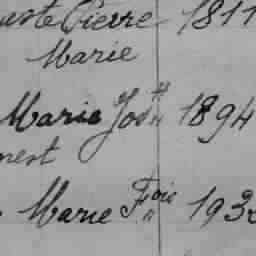 Pierre 1811
Marie
Marie Josh 1894
Marie Fois 193